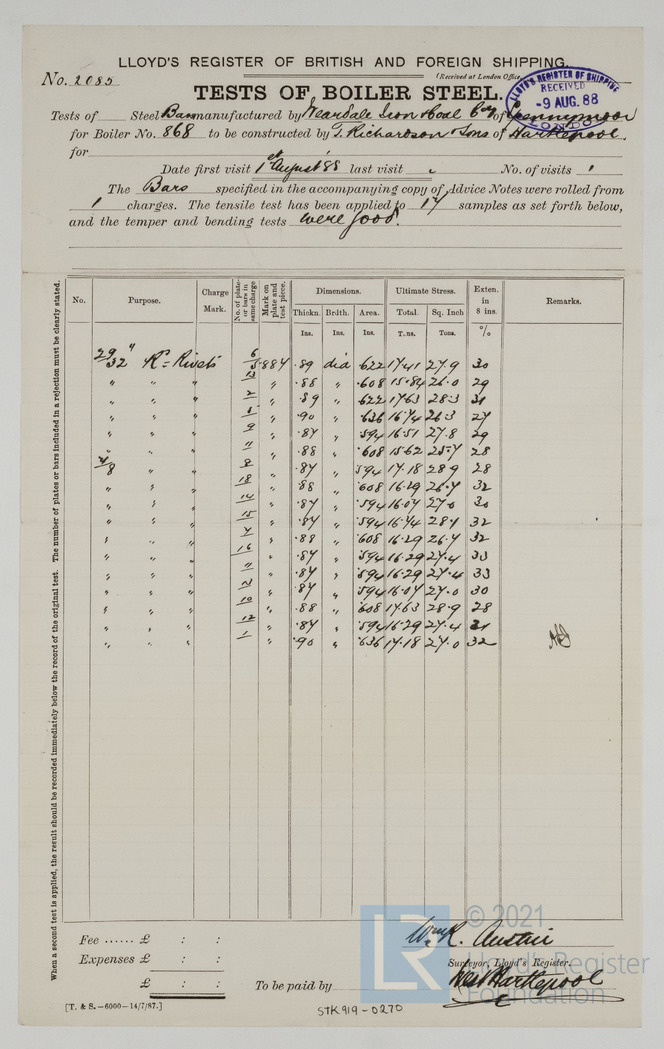 LLOYD'S REGISTER OF BRITISH AND FOREIGN SHIPPING.
No. 2085
(Received at London Office
LLOYD'S REGISTER OF SHIPPING
RECEIVED
-9 AUG. 88
LONDON
TESTS OF BOILER STEEL.
Tests of Steel Bars manufactured by Weardale Iron & Coal Coy of
for Boiler No. 868 to be constructed by T. Richardson & Sons of Hartlepool.
for
Date first visit 1st August '88 last visit " No. of visits 1
The Bars specified in the accompanying copy of Advice Notes were rolled from
1 charges. The tensile test has been applied to 17 samples as set forth below,
and the temper and bending tests were good.
When a second test is applied, the result should be recorded immediately below the record of the original test. The number of plates or bars included in a rejection must be clearly stated.
No. Purpose. Charge Mark. No. of plates or bars in same charge Mark on plate and test piece. Dimensions. Ultimate Stress. Exten. in 8 ins. Remarks.
Thickn. Brdth. Area. Total. Sq. Inch
Ins. Ins. Ins. Tns. Tons. %
29/32" Rivets 884 .89 dia .622 17.41 27.9 30
" " " " .88 " .608 15.84 26.0 29
" " " 2 " .89 " .622 17.63 28.3 31
" " " " .90 " .636 16.74 26.3 27
" " " 9 " .87 " .594 16.51 27.8 29
" " " 11 " .88 " .608 15.62 25.7 28
7/8 " " 8 " .87 " .594 17.18 28.9 28
" " " 18 " .88 " .608 16.29 26.7 32
" " " 14 " .87 " .594 16.07 27.0 30
" " " 15 " .87 " .594 16.74 28.1 32
" " " " .88 " .608 16.29 26.7 32
" " " 16 " .87 " .594 16.29 27.4 33
" " " " .87 " .594 16.29 27.4 33
" " " " .87 " .594 16.07 27.0 30
" " " 10 " .88 " .608 17.63 28.9 28
" " " 12 " .87 " .594 16.29 27.4 31
" " " 1 " .90 " .636 17.18 27.0 32
Fee ...... £ : :
Expenses £ : :
£ : :
To be paid by
Wm R. Austin
Surveyor, Lloyd's Register.
West Hartlepool
[T. & S.—6000—14/7/87.]
STK919-0270
LR
© 2021
Lloyd's Register
Foundation